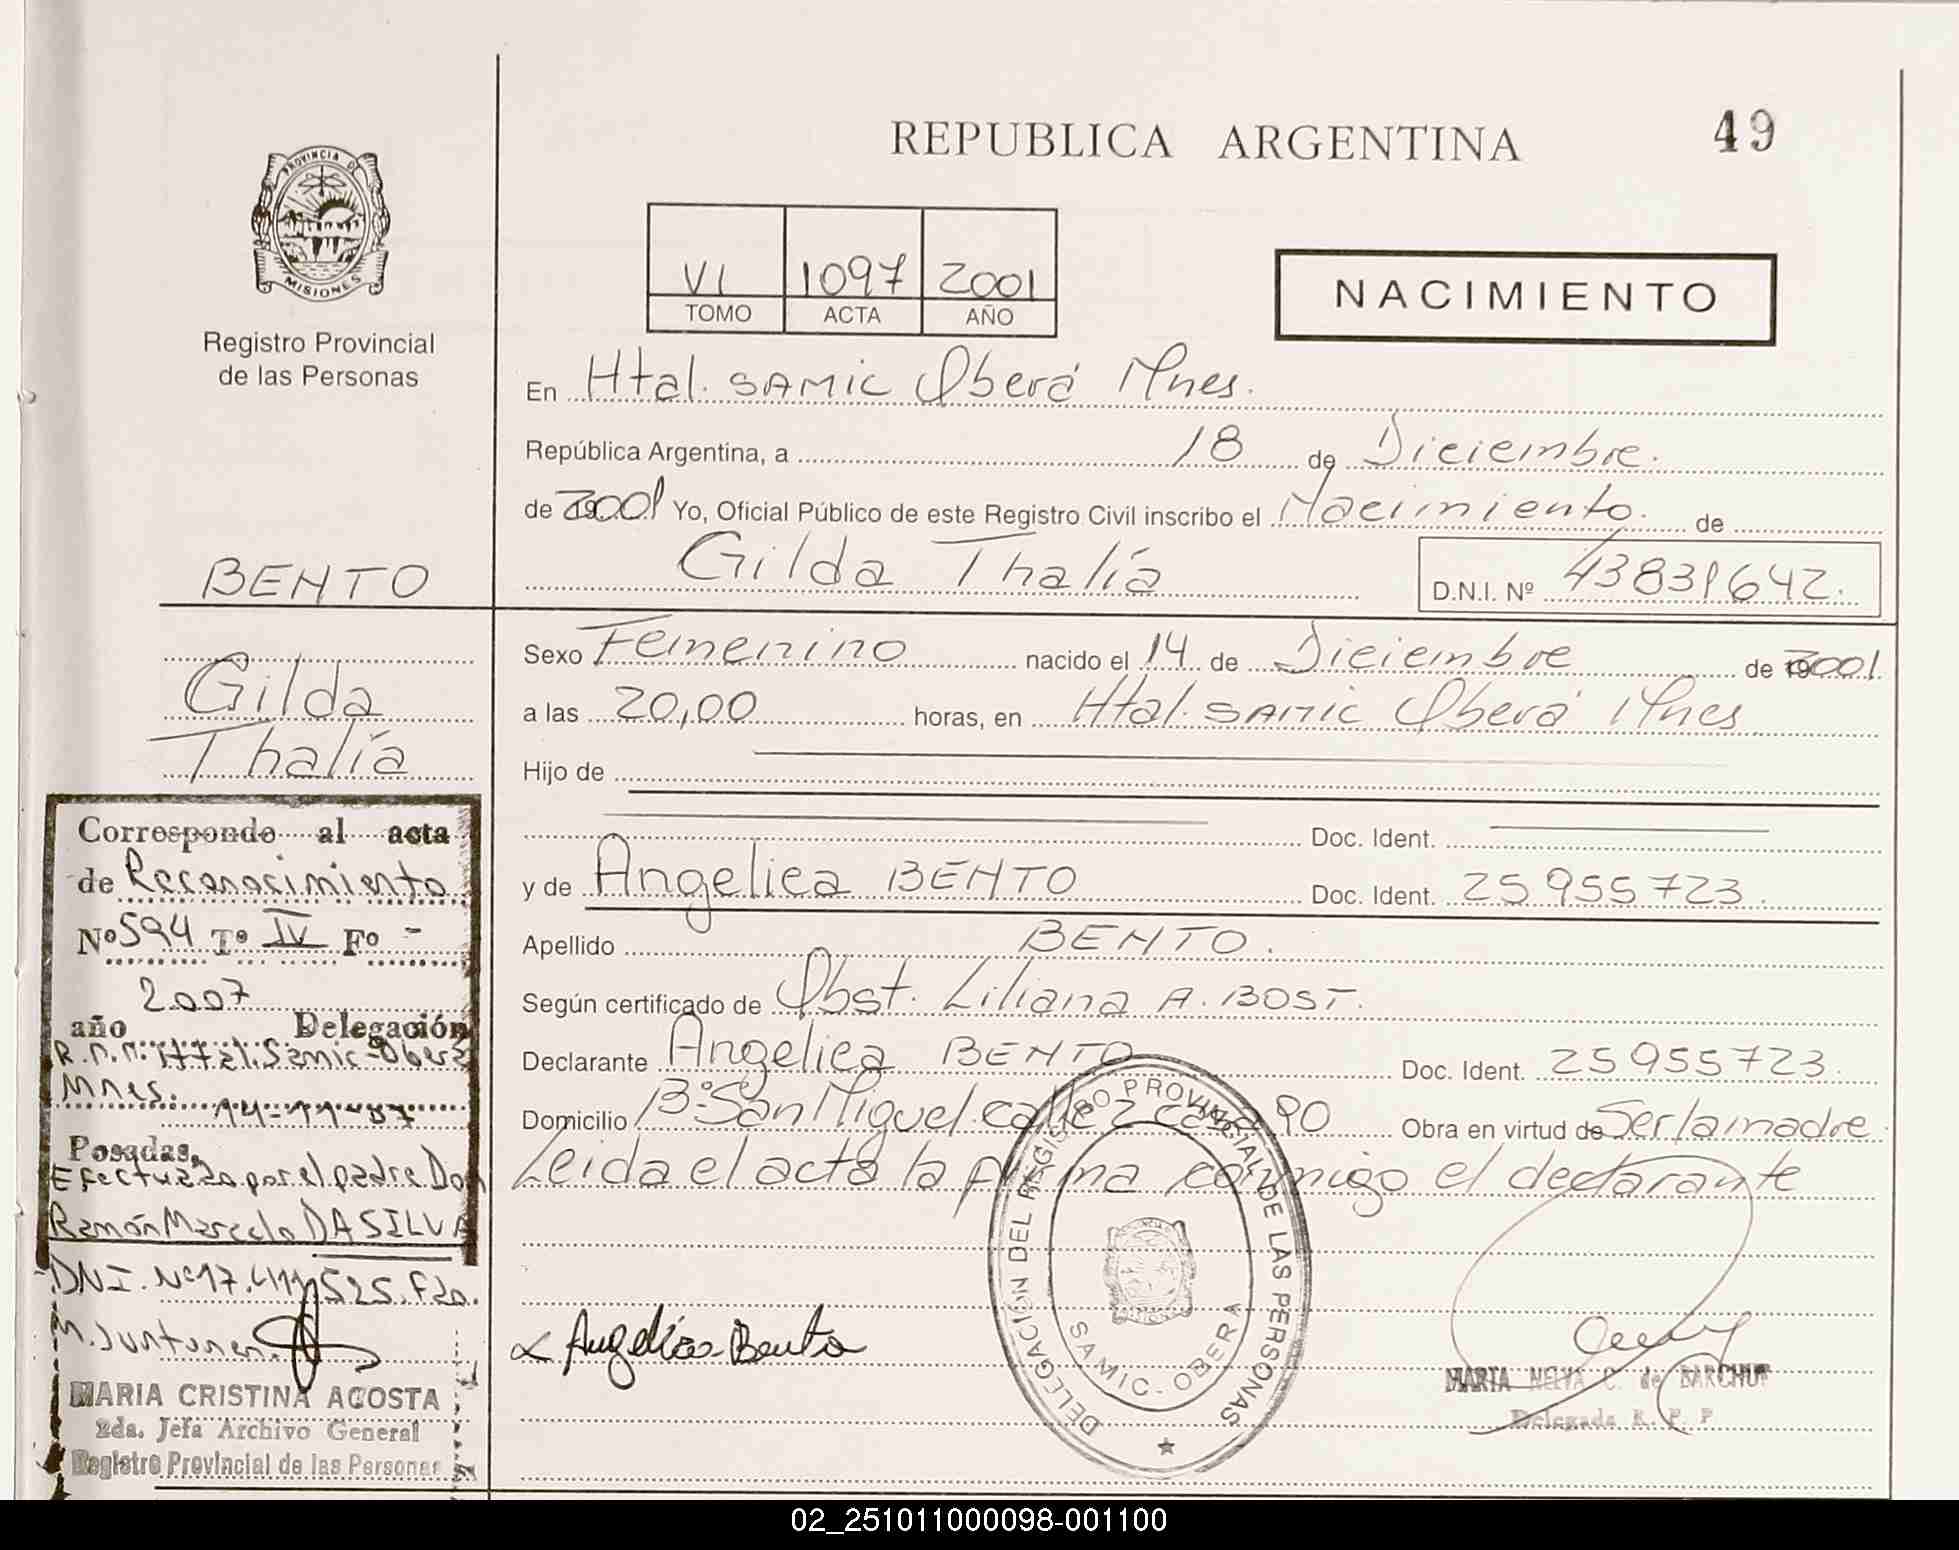 REPUBLICA ARGENTINA
49
PROVINCIA DE
MISIONES
Registro Provincial
de las Personas
VI 1097 2001
TOMO ACTA AÑO
NACIMIENTO
En Htal. SAMIC Oberá Mnes.
República Argentina, a 18 de Diciembre.
de 2001 Yo, Oficial Público de este Registro Civil inscribo el Nacimiento. de
Gilda Thalía D.N.I. Nº 43831642.
BENTO
Gilda
Thalía
Sexo Femenino nacido el 14 de Diciembre de 2001.
a las 20,00 horas, en Htal. SAMIC Oberá Mnes
Hijo de
Doc. Ident.
y de Angelica BENTO Doc. Ident. 25955723.
Apellido BENTO.
Según certificado de Obst. Liliana A. BOST.
Declarante Angelica BENTO Doc. Ident. 25955723.
Domicilio Bº San Miguel calle 2 casa 90 Obra en virtud de Ser la madre
Leida el acta la firma conmigo el declarante
Corresponde al acta
de Reconocimiento
Nº 594 Tº IV Fº -
2007
año Delegación
Htal. Samic-Oberá
Mnes. 14-11-07
Posadas,
Efectuado por el padre Don
Ramón Marcelo DA SILVA
DNI. Nº 17.411.525. Fdo.
MARIA CRISTINA ACOSTA
2da. Jefa Archivo General
Registro Provincial de las Personas
Angelica Bento
DELEGACIÓN DEL REGISTRO PROVINCIAL DE LAS PERSONAS
SAMIC - OBERA
MARTA NELVA C. de BARCHUK
Delegada R. P. P
02_251011000098-001100